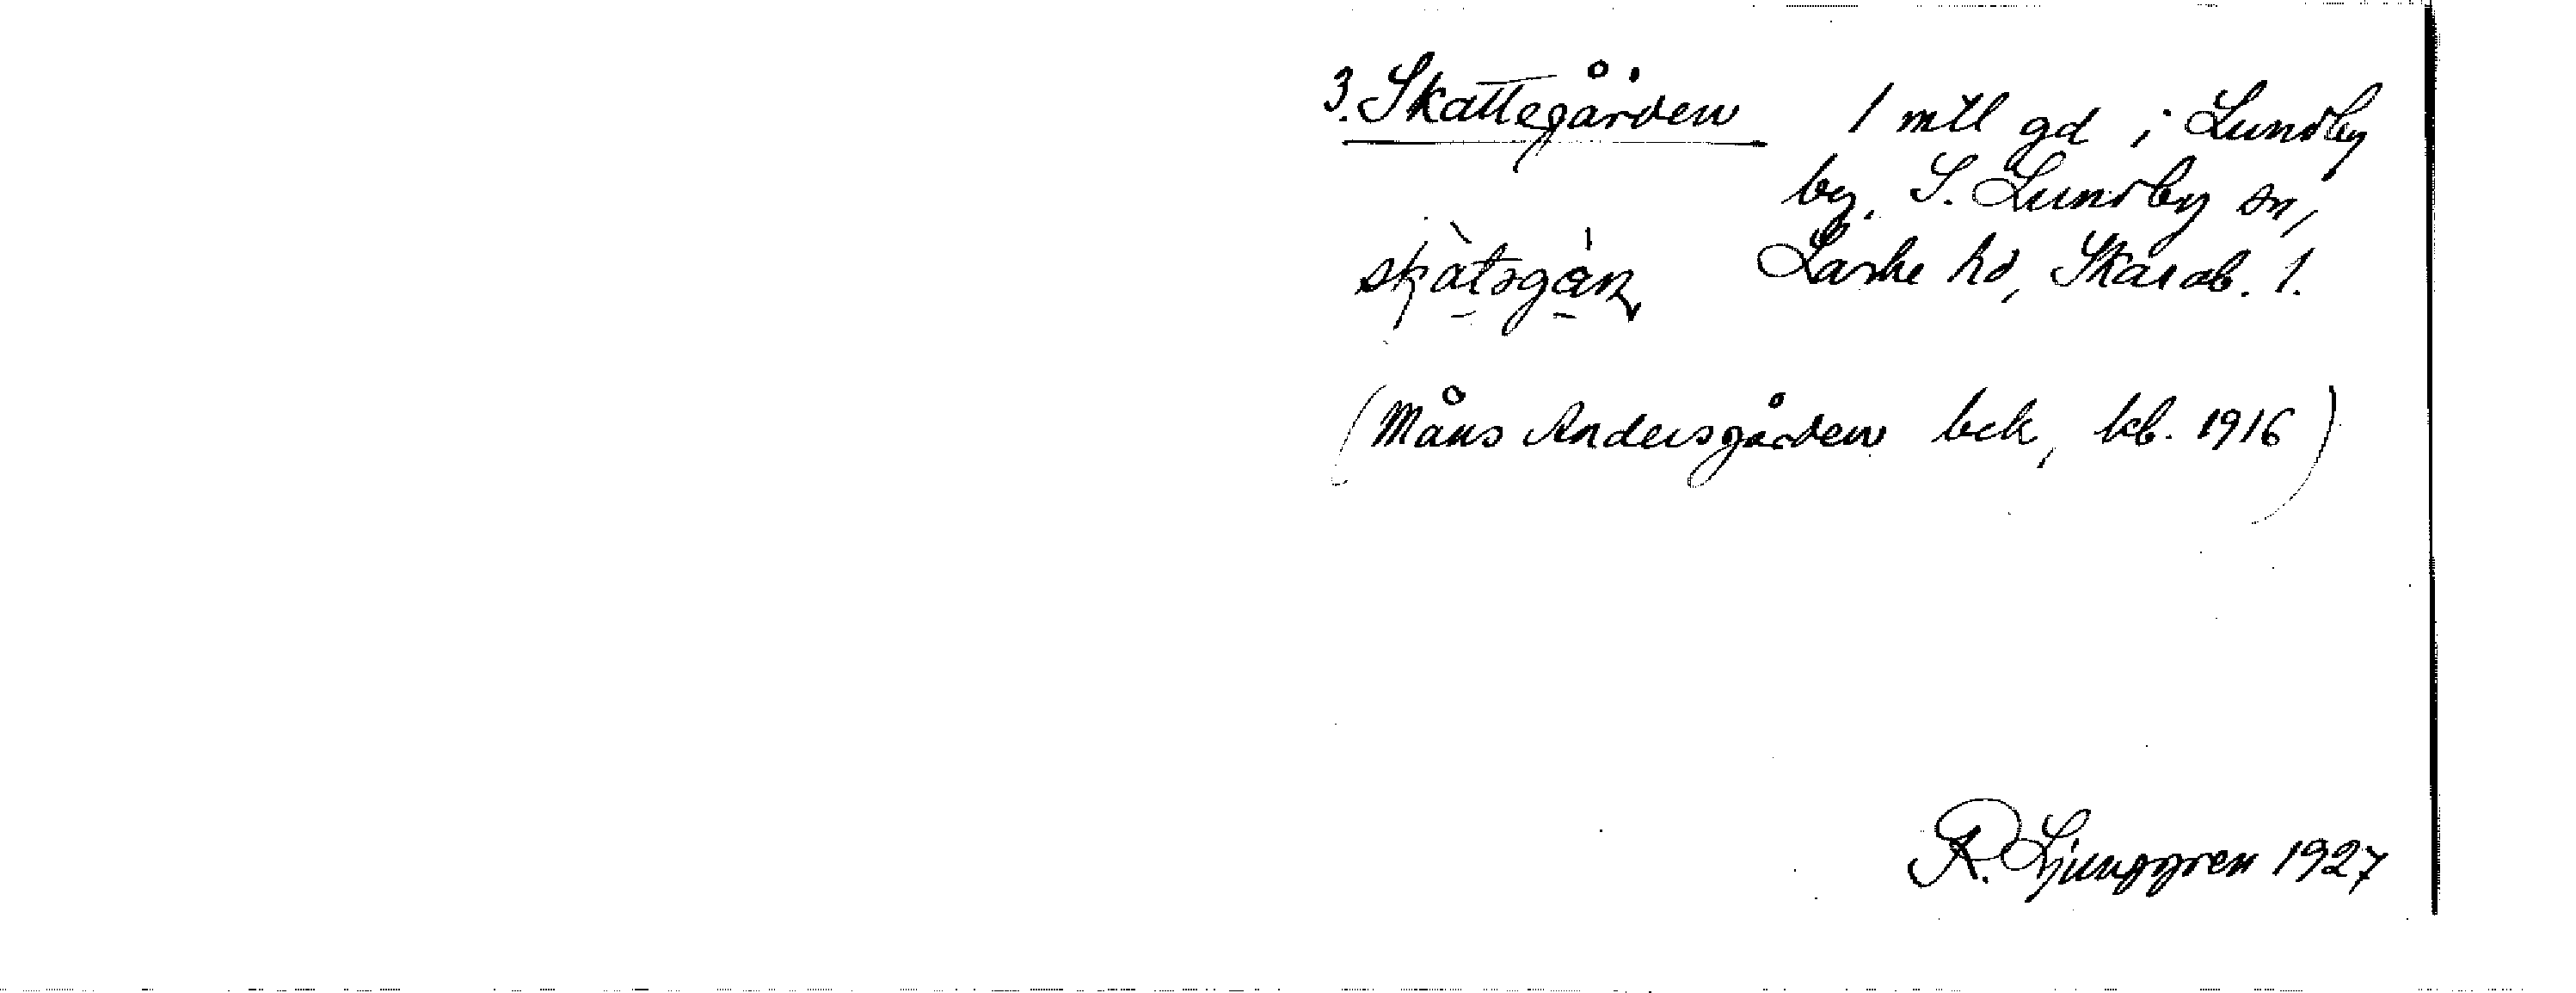 3. Skattegården 1 mtl gd i Lundby
by, S. Lundby sn,
skàtsgàṇ Laske hd, Skarab. l.
(Måns Andersgården bek, kb. 1916)
R. Ljunggren 1927